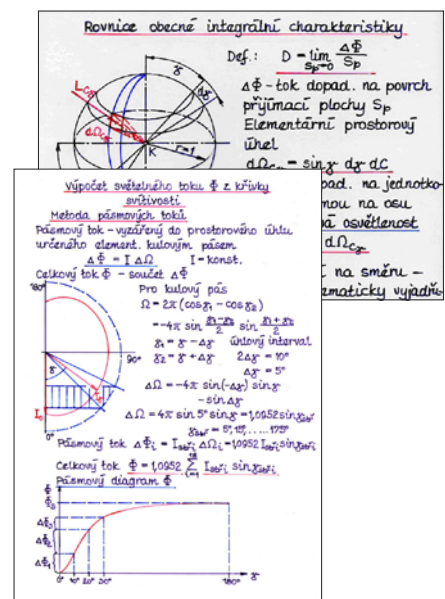 Rovnice obecné integrální charakteristiky
Def.: D = lim ΔΦ/Sp
Sp→0
ΔΦ - tok dopad. na povrch
přijímací plochy Sp
Elementární prostorový
úhel
dΩCγ = sinγ dγ dC
pad. na jednotko-
mnou na osu
vá osvětlenost
dΩCγ
í na směru -
tematicky vyjádři-
LCγ
γ
dγ
dΩCγ
K
r=1
Výpočet světelného toku Φ z křivky
svítivosti
Metoda pásmových toků
Pásmový tok - vyzářený do prostorového úhlu
určeného element. kulovým pásem
ΔΦ = I ΔΩ I = konst.
Celkový tok Φ - součet ΔΦ
180°
Pro kulový pás
Ω = 2π(cosγ1 - cosγ2)
= -4π sin (γ1-γ2)/2 sin (γ1+γ2)/2
γ1 = γ - Δγ úhlový interval
γ2 = γ + Δγ 2Δγ = 10°
Δγ = 5°
90°
γ
ΔΩ = -4π sin(-Δγ) sinγ
-sinΔγ
ΔΩ = 4π sin 5° sinγ = 1,0952 sinγstř
γstř = 5°, 15°, ..... 175°
I0
0°
Pásmový tok ΔΦi = Istři ΔΩi = 1,0952 Istři sinγstři
Celkový tok Φ = 1,0952 Σ Istři sinγstři
18
i=1
Pásmový diagram Φ
Φ
ΔΦ3
ΔΦ2
ΔΦ1
0° 10° 20° 30° 180° γ